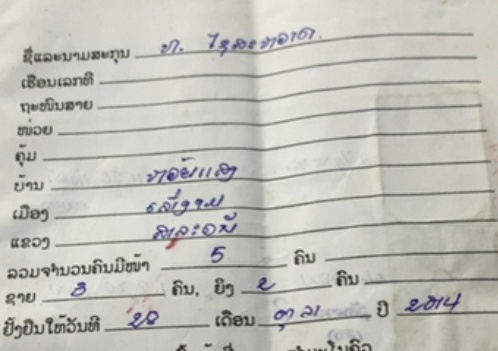 ຊື່ແລະນາມສະກຸນ ທ. ໄຊສະຫວາດ
ເຮືອນເລກທີ
ຖະໜົນສາຍ
ໜ່ວຍ
ຄຸ້ມ
ບ້ານ ຫ້ວຍແສງ
ເມືອງ ເລົ່າງາມ
ແຂວງ ສາລະວັນ
ລວມຈຳນວນຄົນມີໜ້າ 5 ຄົນ
ຊາຍ 3 ຄົນ, ຍິງ 2 ຄົນ
ຢັ້ງຢືນໃຫ້ວັນທີ 28 ເດືອນ ຕຸລາ ປີ 2014